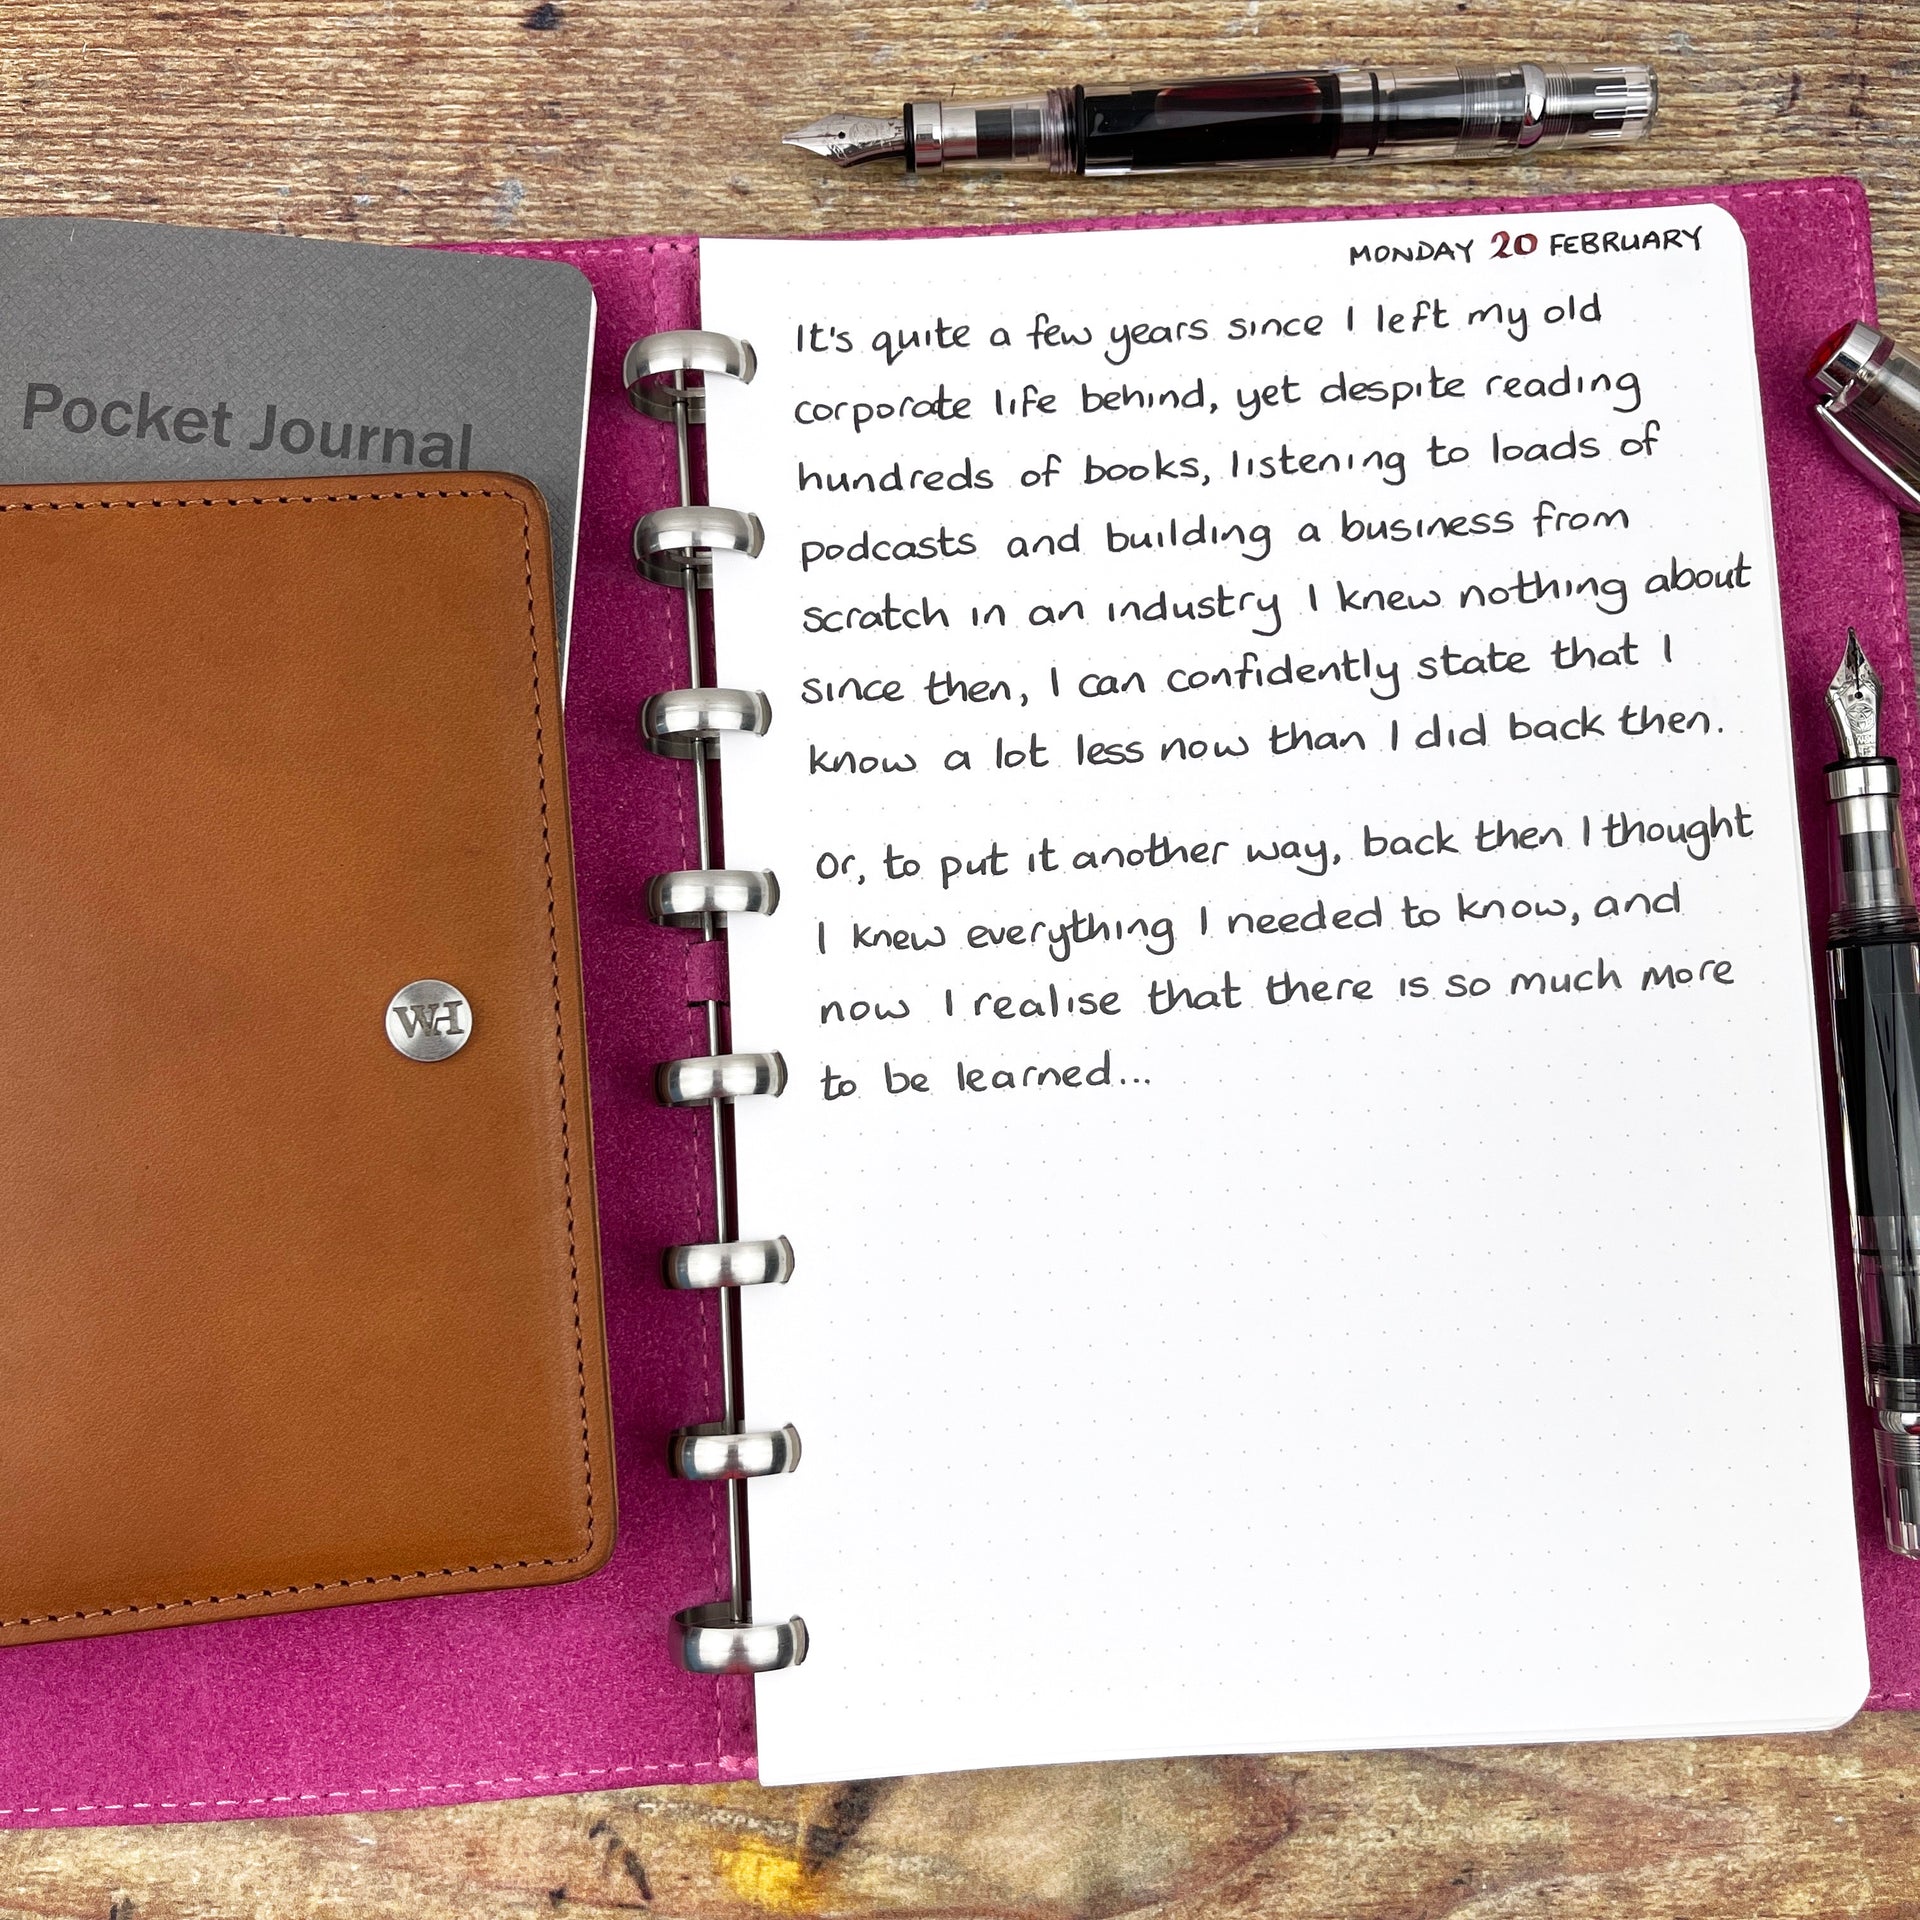 Pocket Journal
WH
MONDAY 20 FEBRUARY
It's quite a few years since I left my old
corporate life behind, yet despite reading
hundreds of books, listening to loads of
podcasts and building a business from
scratch in an industry I knew nothing about
since then, I can confidently state that I
know a lot less now than I did back then.
Or, to put it another way, back then I thought
I knew everything I needed to know, and
now I realise that there is so much more
to be learned...